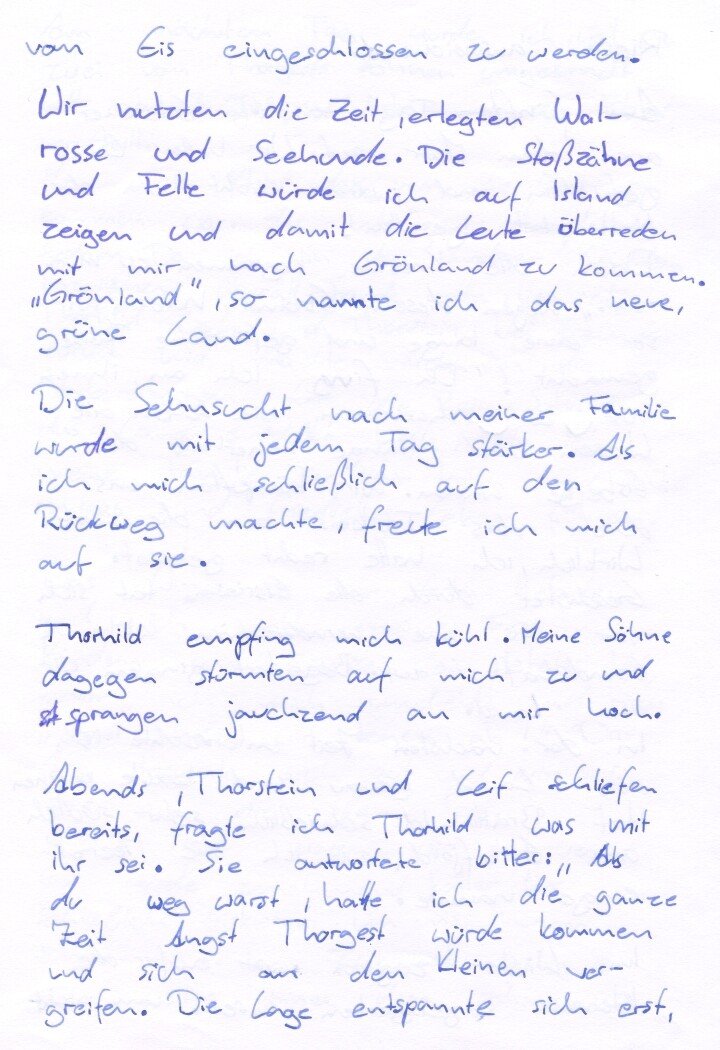 vom Eis eingeschlossen zu werden.
Wir nutzten die Zeit, erlegten Wal-
rosse und Seehunde. Die Stoßzähne
und Felle würde ich auf Island
zeigen und damit die Leute überreden
mit mir nach Grönland zu kommen.
„Grönland", so nannte ich das neue,
grüne Land.
Die Sehnsucht nach meiner Familie
wurde mit jedem Tag stärker. Als
ich mich schließlich auf den
Rückweg machte, freute ich mich
auf sie.
Thorhild empfing mich kühl. Meine Söhne
dagegen stürmten auf mich zu und
sprangen jauchzend an mir hoch.
Abends, Thorstein und Leif schliefen
bereits, fragte ich Thorhild was mit
ihr sei. Sie antwortete bitter: „Als
du weg warst, hatte ich die ganze
Zeit Angst Thorgest würde kommen
und sich an den Kleinen ver-
greifen. Die Lage entspannte sich erst,